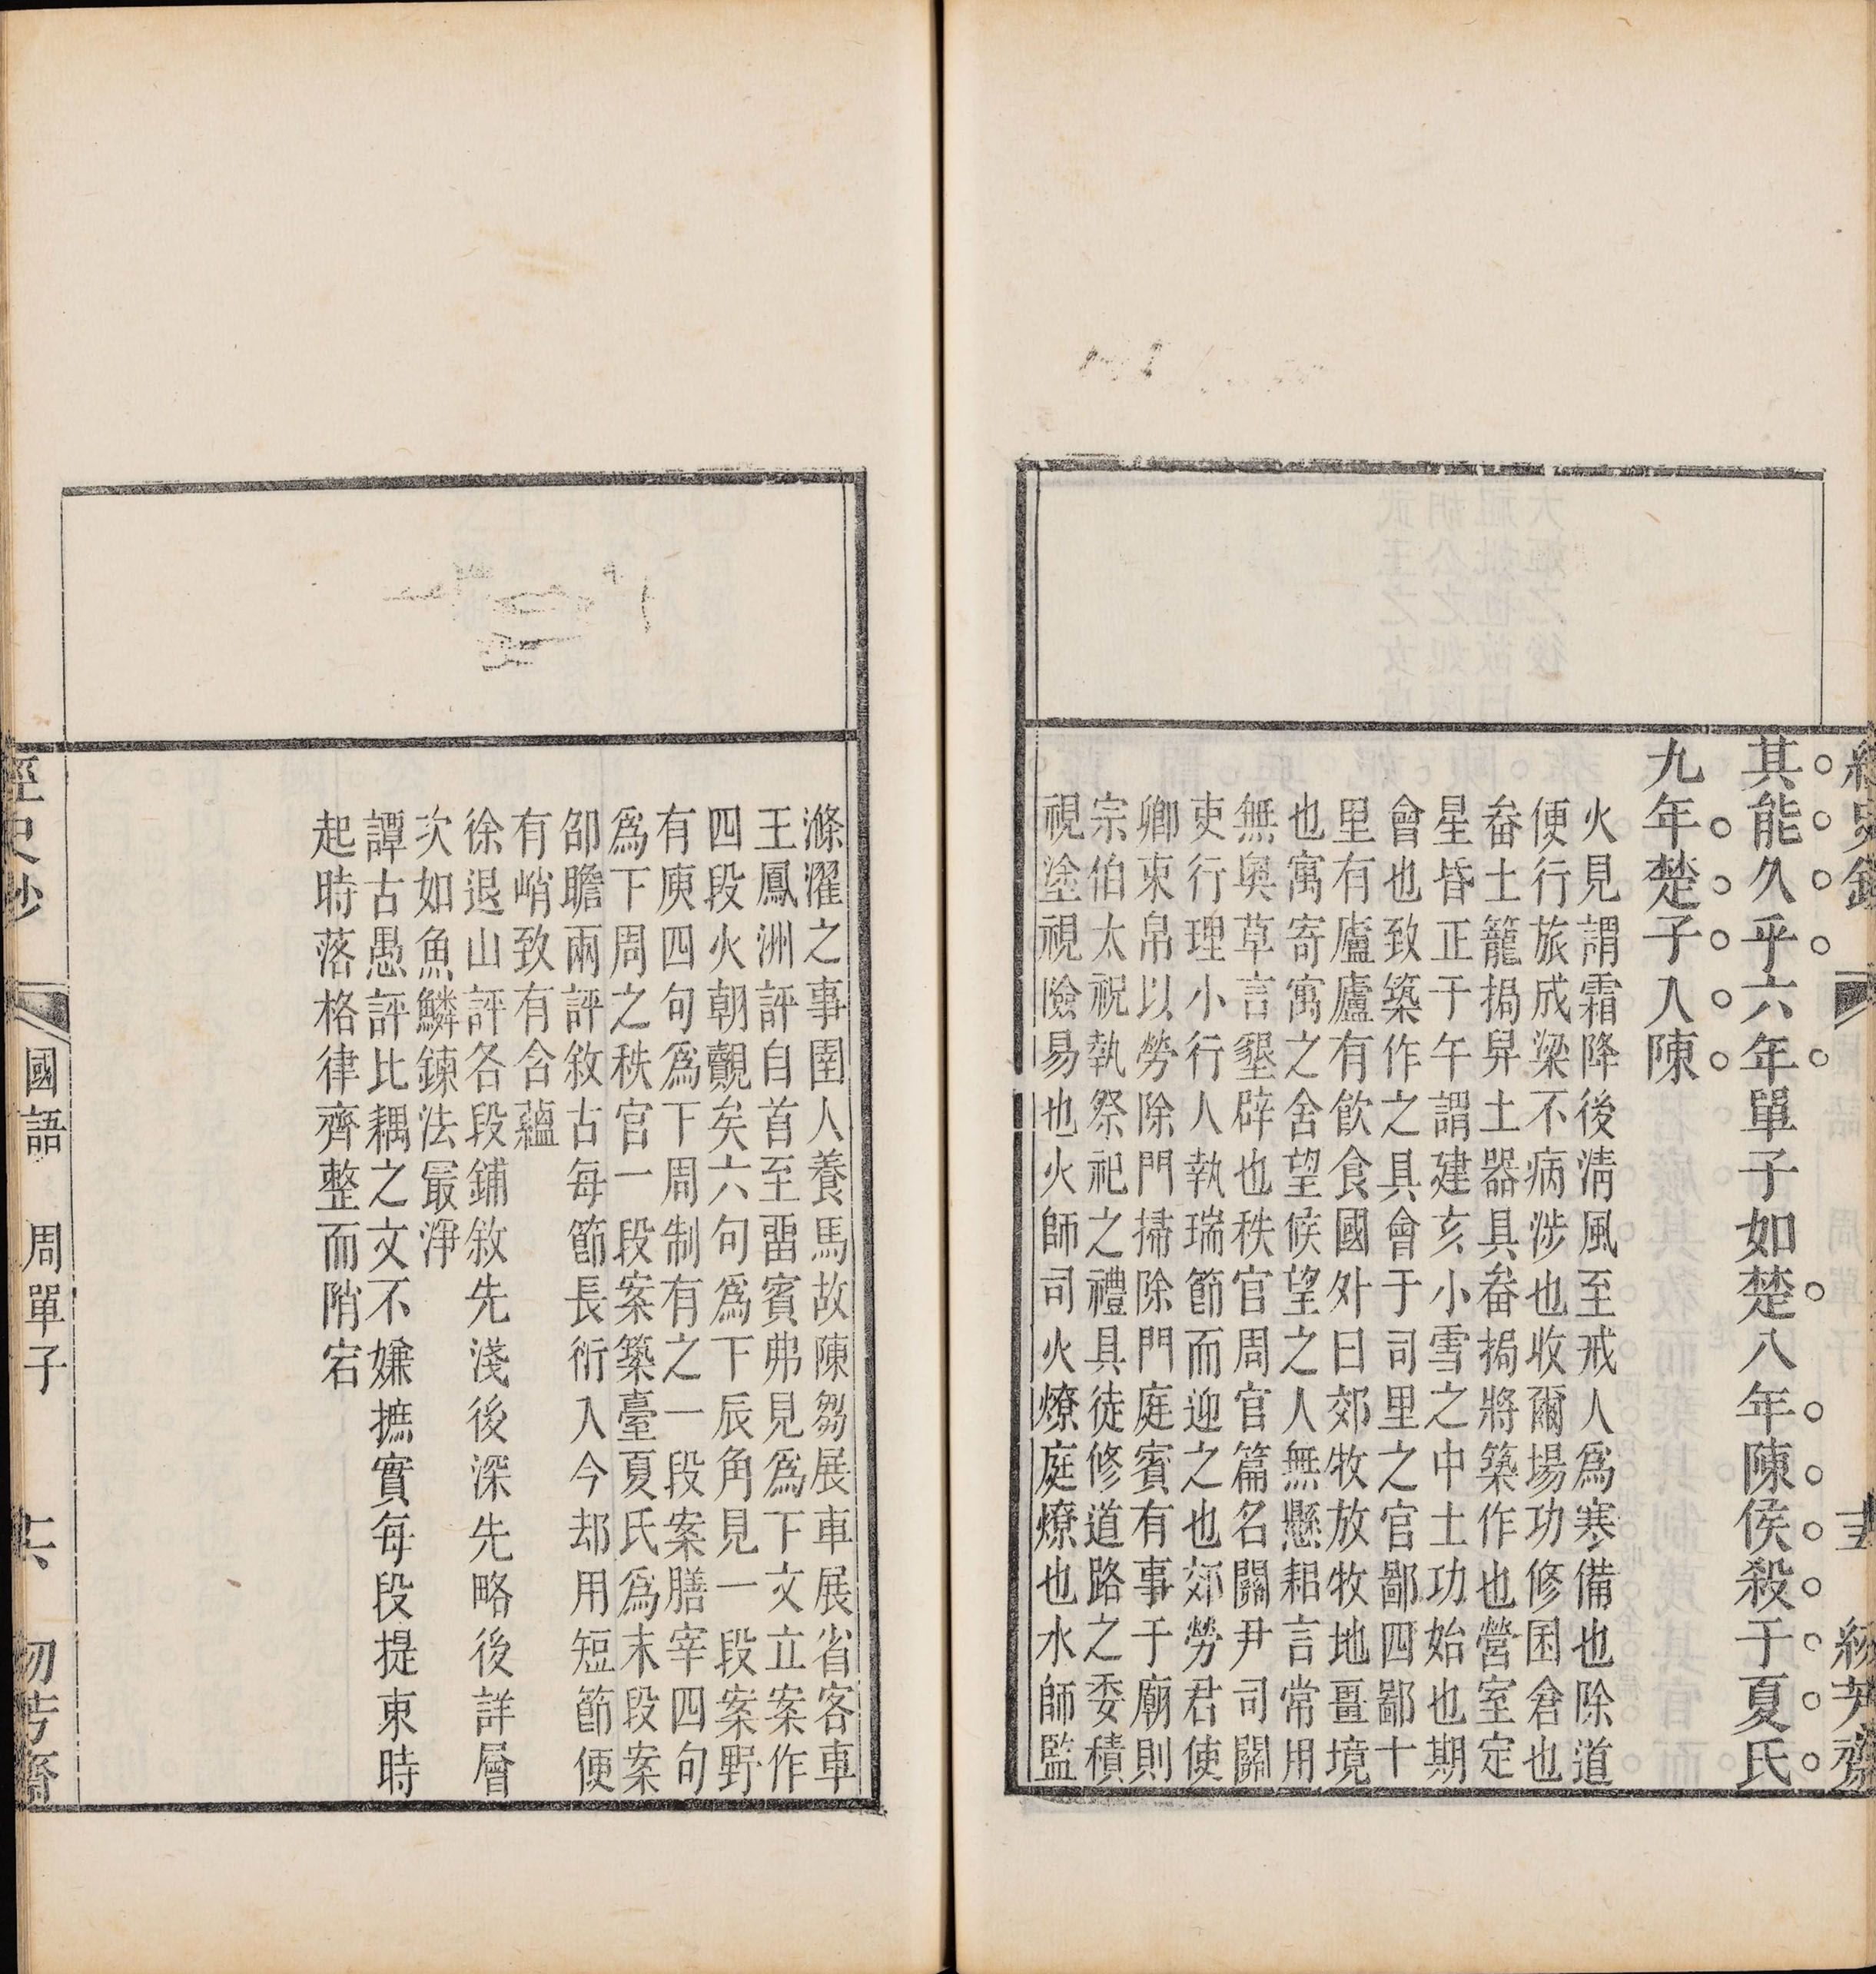 其能久乎六年單子如楚八年陳侯殺于夏氏
九年楚子入陳
火見謂霜降後淸風至戒人爲寒備也除道
便行旅成梁不病涉也收爾場功修囷倉也
畚土籠挶舁土器具畚挶將築作也營室定
星昏正于午謂建亥小雪之中土功始也期
會也致築作之具會于司里之官鄙四鄙十
里有廬廬有飮食國外曰郊牧放牧地畺境
也寓寄寓之舍望候望之人無懸耜言常用
無奧草言墾辟也秩官周官篇名關尹司關
吏行理小行人執瑞節而迎之也郊勞君使
卿束帛以勞除門掃除門庭賓有事于廟則
宗伯太祝執祭祀之禮具徒修道路之委積
視塗視險易也火師司火燎庭燎也水師監
滌濯之事圉人養馬故陳芻展車展省客車
王鳳洲評自首至畱賓弗見爲下文立案作
四段火朝覿矣六句爲下辰角見一段案野
有庾四句爲下周制有之一段案膳宰四句
爲下周之秩官一段案築臺夏氏爲末段案
邵瞻兩評敘古每節長衍入今却用短節便
有峭致有含蘊
徐退山評各段鋪敘先淺後深先略後詳層
次如魚鱗鍊法最淨
譚古愚評比耦之文不嫌摭實每段提束時
起時落格律齊整而陗宕
經史鈔
國語
周單子